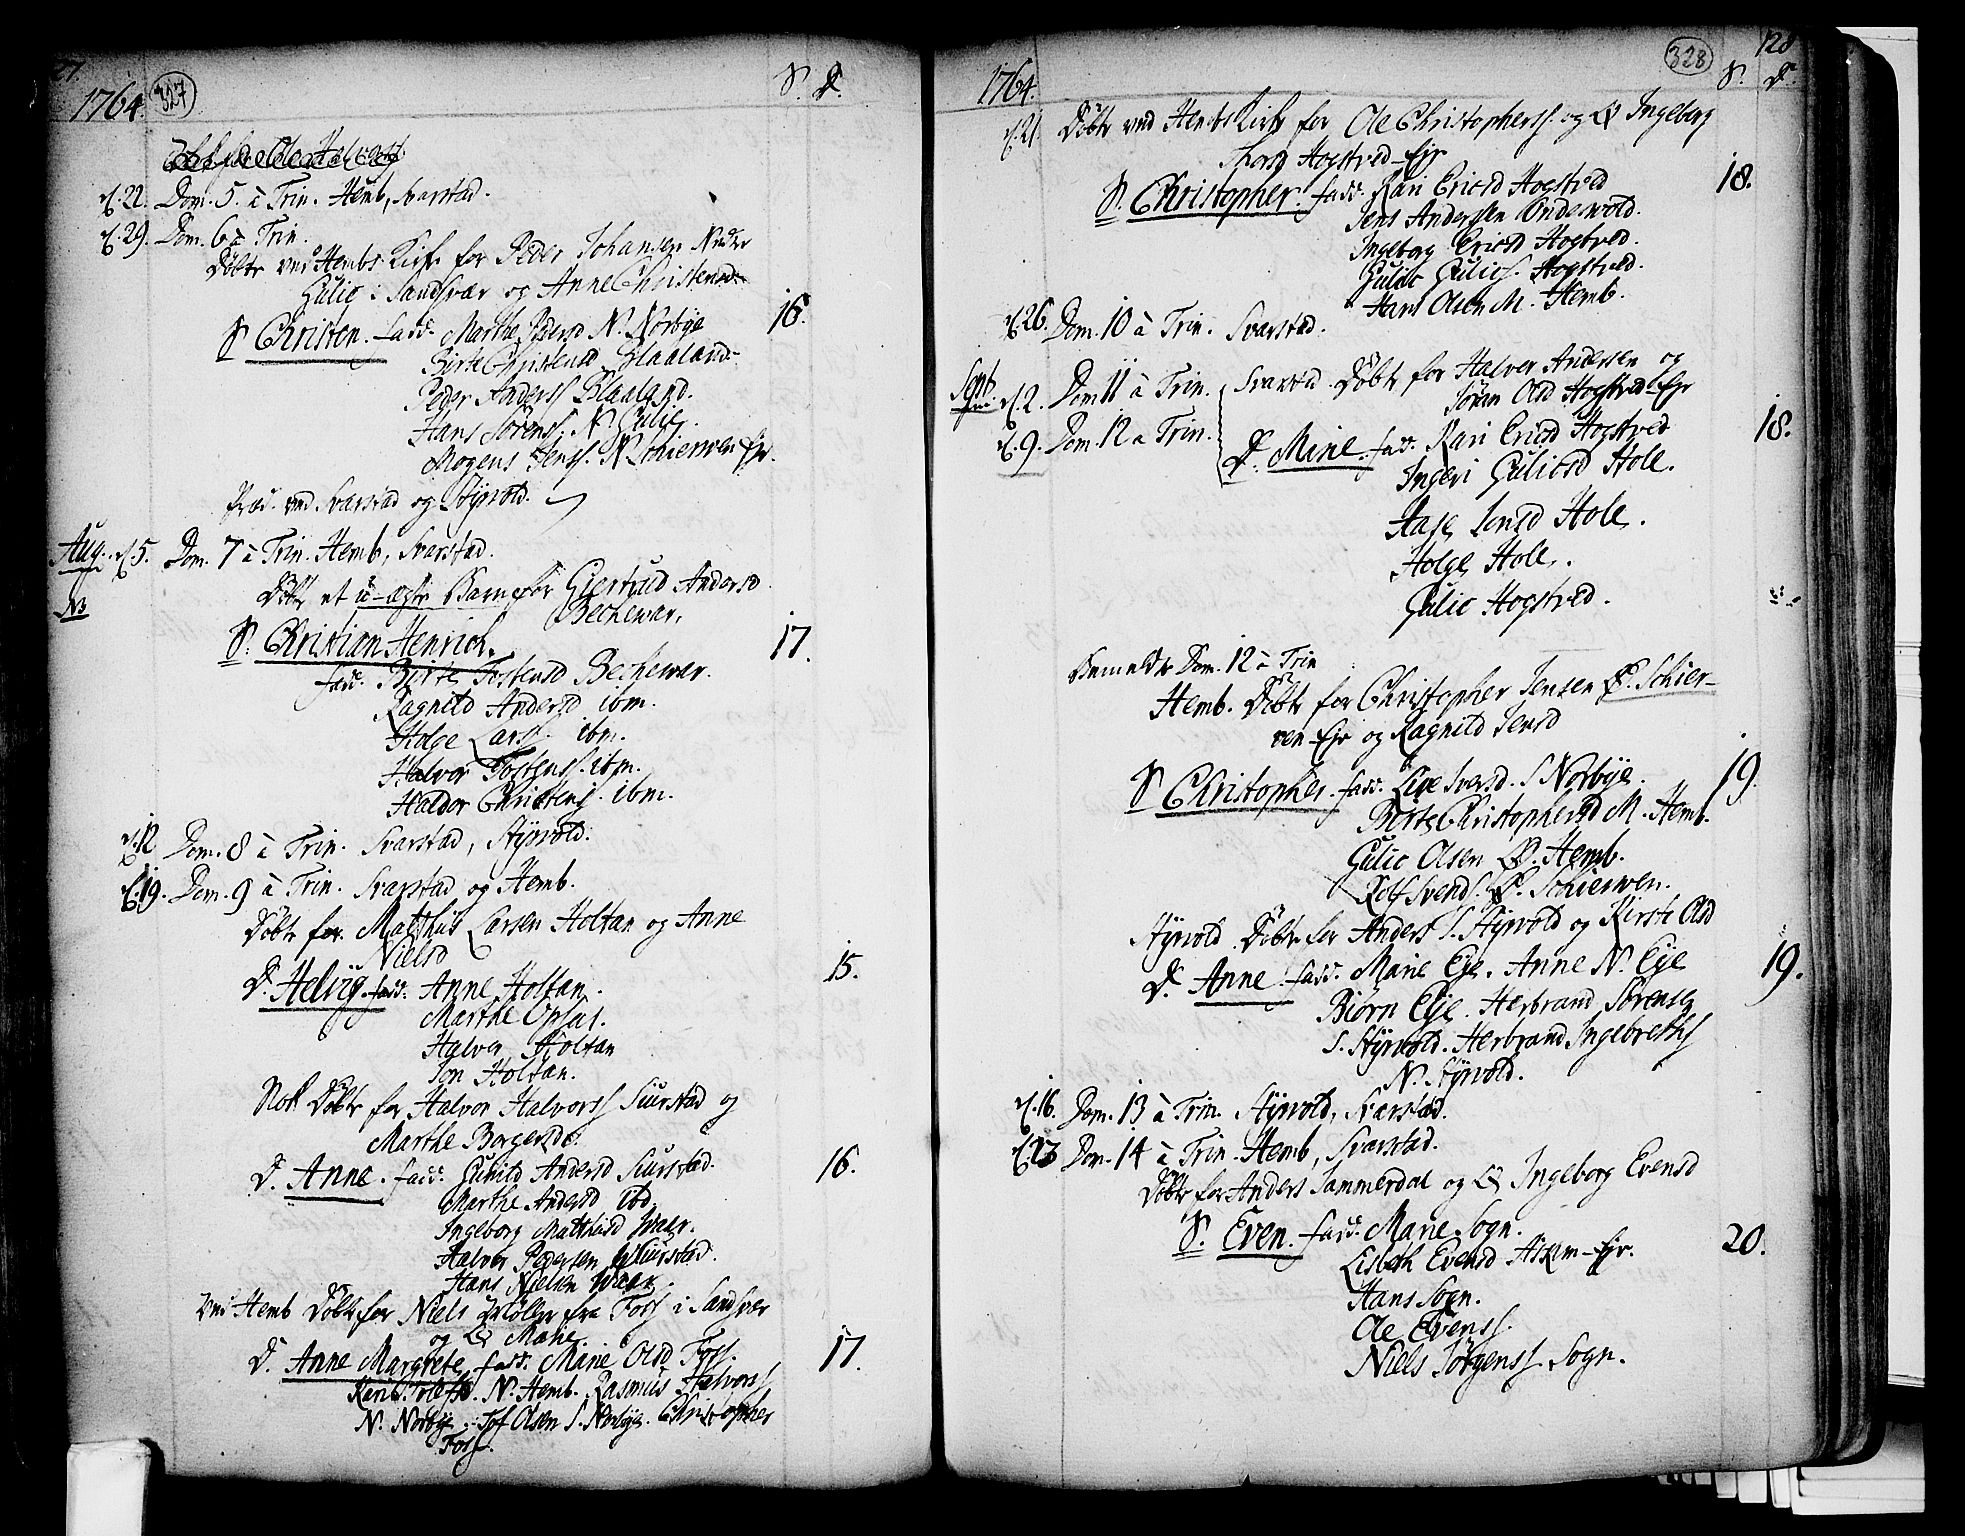 27.
1764. 327 S. D.
d. 22. Dom. 5. à Trin. Hemb, Svarstad.
d. 29. Dom. 6 à Trin.
Döbte ved Hembs Kirke for Peder Johansen Nedre
Gulie i Sandsvær og Anne Christensd.
S. Christen. Fadd. Marthe Pedersd N. Norbye 16.
Birte Christensd Blaaland.
Peder Anderss Blaaland.
Hans Sörenss. N. Gulie.
Mogens Jenss. N. Schierven Ejr.
Præd. ved Svarstad og Styrvold.
Aug. d. 5. Dom. 7 à Trin. Hemb, Svarstad.
NB Döbt et u-ægte Barn for Giertrud Andersd
Bechewar.
S. Christian Henrich. 17.
Fadd. Birte Tostensd Bechewar.
Ragnild Andersd ibm.
Holge Larss. ibm.
Halvor Tostenss. ibm.
Haldor Christens. ibm.
d. 12 Dom. 8 à Trin. Svarstad, Styrvold.
d. 19. Dom. 9 à Trin. Svarstad og Hemb.
Döbte for Mathis Larsen Holtan og Anne
Nielsd
D. Helvig. Fadd. Anne Holtan. 15.
Marthe Opsal.
Halvor Holtan
Jon Holtan.
Nok Döbte for Halvor Halvorss Siurstad og
Marthe Borgersd.
D. Anne. Fadd. Gunild Andersd Siurstad. 16.
Marthe Andersd ibd.
Ingeborg Mathisd Waer.
Halvor Pedersen Siurstad.
Hans Nielsen Waer.
Ved Hemb Döbte for Niels Möller fra Foss i Sandsvær
og Marie.
D. Anne Margrete. Fadd. Marie Olsd Foss. 17.
N. Hemb. Rasmus Halvorss
N. Norbye. Tof Olsen S. Norbye. Christopher
Foss.
128
1764. 328 S. D.
d. 21. Döbte ved Hembs Kirke for Ole Christopherss. og Ingeborg
Thorsd Hogstved-Ejr
S. Christopher. Fadd. Kari Ericsd Hogstved 18.
Jens Andersen Underwold.
Ingeborg Ericsd Hogstved.
Gulic Gulics. Hogstved.
Hans Olsen M. Hemb.
d. 26. Dom. 10 à Trin. Svarstad.
Sept. d. 2. Dom 11 à Trin. Svarstad. Döbte for Halvor Andersen og
Jöran Olsd Hogstved-Ejr
d. 9. Dom. 12 a Trin.
D. Mine. Fadd. Kari Ericsd Hogstved 18.
Ingeri Gulicsd Hole.
Aase Jensd Hole.
Holge Hole.
Gulic Hogstved.
Bemeldte Dom. 12 à Trin
Hemb. Döbte for Christopher Jensen Ö. Schier-
ven-Ejr og Ragnild Jensd
S Christopher. Fadd. Live Sversd. S Norbye. 19.
Birte Christophersd M. Hemb.
Gulic Olsen Ö. Hemb.
Rolf Svends. Ö. Schierwen.
Styrvold. Döbte for Anders S. Styrvold og Kirsti Olsd
D. Anne. Fadd. Marie Eje. Anne N. Eje 19.
Biörn Eje. Herbrand Sörensen
S. Styrvold. Herbrand Ingebrethss
N. Styrvold.
d. 16. Dom. 13 à Trin. Styrvold, Svarstad.
d. 23 Dom. 14 à Trin. Hemb, Svarstad.
Döbte for Anders Sammerdal og Ingeborg Evensd
S. Even. Fadd. Marie Sogn. 20.
Lisbeth Evensd Askim-Ejr.
Hans Sogn.
Ole Evenss.
Niels Jörgenss. Sogn.